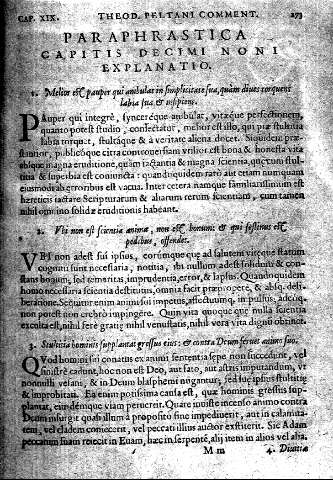 CAP. XIX. THEOD. PELTANI COMMENT. 273
PARAPHRASTICA
CAPITIS DECIMI NONI
EXPLANATIO.
1. Melior est pauper qui ambulat in simplicitate sua, quàm diues torquens
labia sua & insipiens.
PAuper qui integrè, syncereque ambulat, vitæque perfectionem,
quanto potest studio, consectatur, melior est illo, qui præ stultitia
labia torquet, stultáque & à veritate aliena docet. Siquidem præ-
stantior, publicóque circa controuersiam vtilior est bona & honesta vita
absque magna eruditione, quàm iactantia & magna scientia, quæ cum stul-
titia & superbia est coniuncta: quandoquidem rarò aut etiam numquam
eiusmodi ab erroribus est vacua. Inter cetera namque familiarissimum est
hereticis iactare Scripturarum & aliarum rerum scientiam, cum tamen
nihil omnino solidæ eruditionis habeant.
2. Vbi non est scientia animæ, non est bonum: & qui festinus est
pedibus, offendet.
VBi non adest sui ipsius, eorúmque quæ ad salutem vitæque statum
cognitu sunt necessaria, notitia, ibi nullum adest solidum & con-
stans bonum, sed temeritas, imprudentia, error, & lapsus. Quando quidem
homo necessaria scientia destitutus, omnia facit præproperè, & absq. deli-
beratione. Sequitur enim animi sui impetus, affectuumq. impulsus; adeóq.
non potest non crebrò impingere. Quin vita quoque quæ nulla scientia
exculta est, nihil ferè gratiæ, nihil venustatis, nihil vera vita dignū obtinet.
3. Stultitia hominis supplantat gressus eius: & contra Deum feruet animo suo.
QVod homini sui conatus ex animi sententia sæpe non succedunt, vel
sinistrè cadunt, hoc non est Deo, aut fato, aut astris imputandum, vt
nonnulli velant, & in Deum blasphemi negant; sed suæ ipsius stultitiæ
& improbitati. Ea enim potissima causa est, quæ hominis gressus sup-
plantat, eiúsdemque viam peruertit. Quare iniustè incenso animo contra
Deum insurgit quasi illum à proposito fine impedierit, aut in calamita-
tem, vel cladem coniecerit, vel peccati illius auctor exstiterit. Sic Adam
peccatum suum reiecit in Euam, hæc in serpentē, alij item in alios vel alia.
M m 4. Diuitiæ